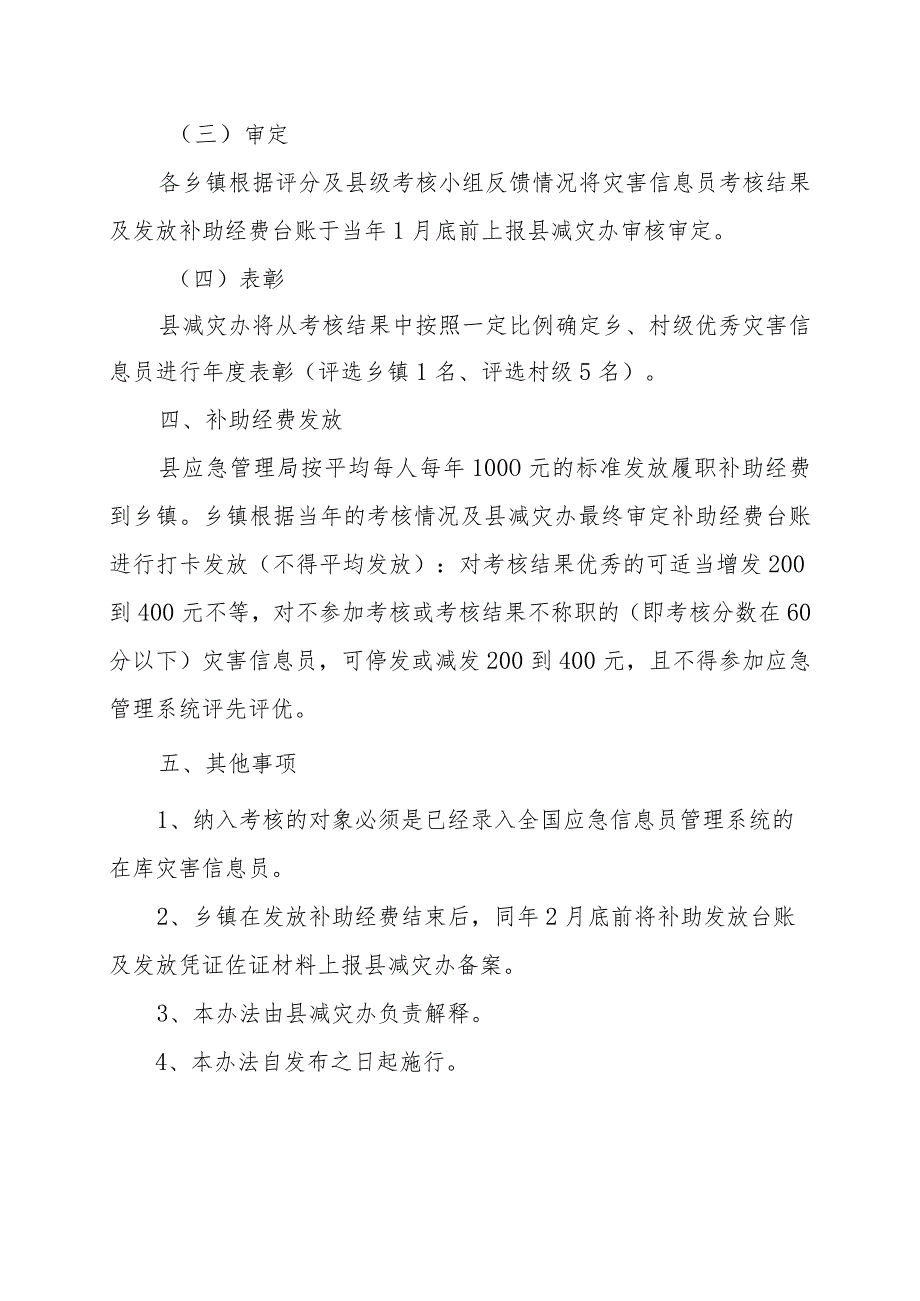 （三）审定
各乡镇根据评分及县级考核小组反馈情况将灾害信息员考核结果
及发放补助经费台账于当年1月底前上报县减灾办审核审定。
（四）表彰
县减灾办将从考核结果中按照一定比例确定乡、村级优秀灾害信
息员进行年度表彰（评选乡镇1名、评选村级5名）。
四、补助经费发放
县应急管理局按平均每人每年1000元的标准发放履职补助经费
到乡镇。乡镇根据当年的考核情况及县减灾办最终审定补助经费台账
进行打卡发放（不得平均发放）：对考核结果优秀的可适当增发200
到400元不等，对不参加考核或考核结果不称职的（即考核分数在60
分以下）灾害信息员，可停发或减发200到400元，且不得参加应急
管理系统评先评优。
五、其他事项
1、纳入考核的对象必须是已经录入全国应急信息员管理系统的
在库灾害信息员。
2、乡镇在发放补助经费结束后，同年2月底前将补助发放台账
及发放凭证佐证材料上报县减灾办备案。
3、本办法由县减灾办负责解释。
4、本办法自发布之日起施行。